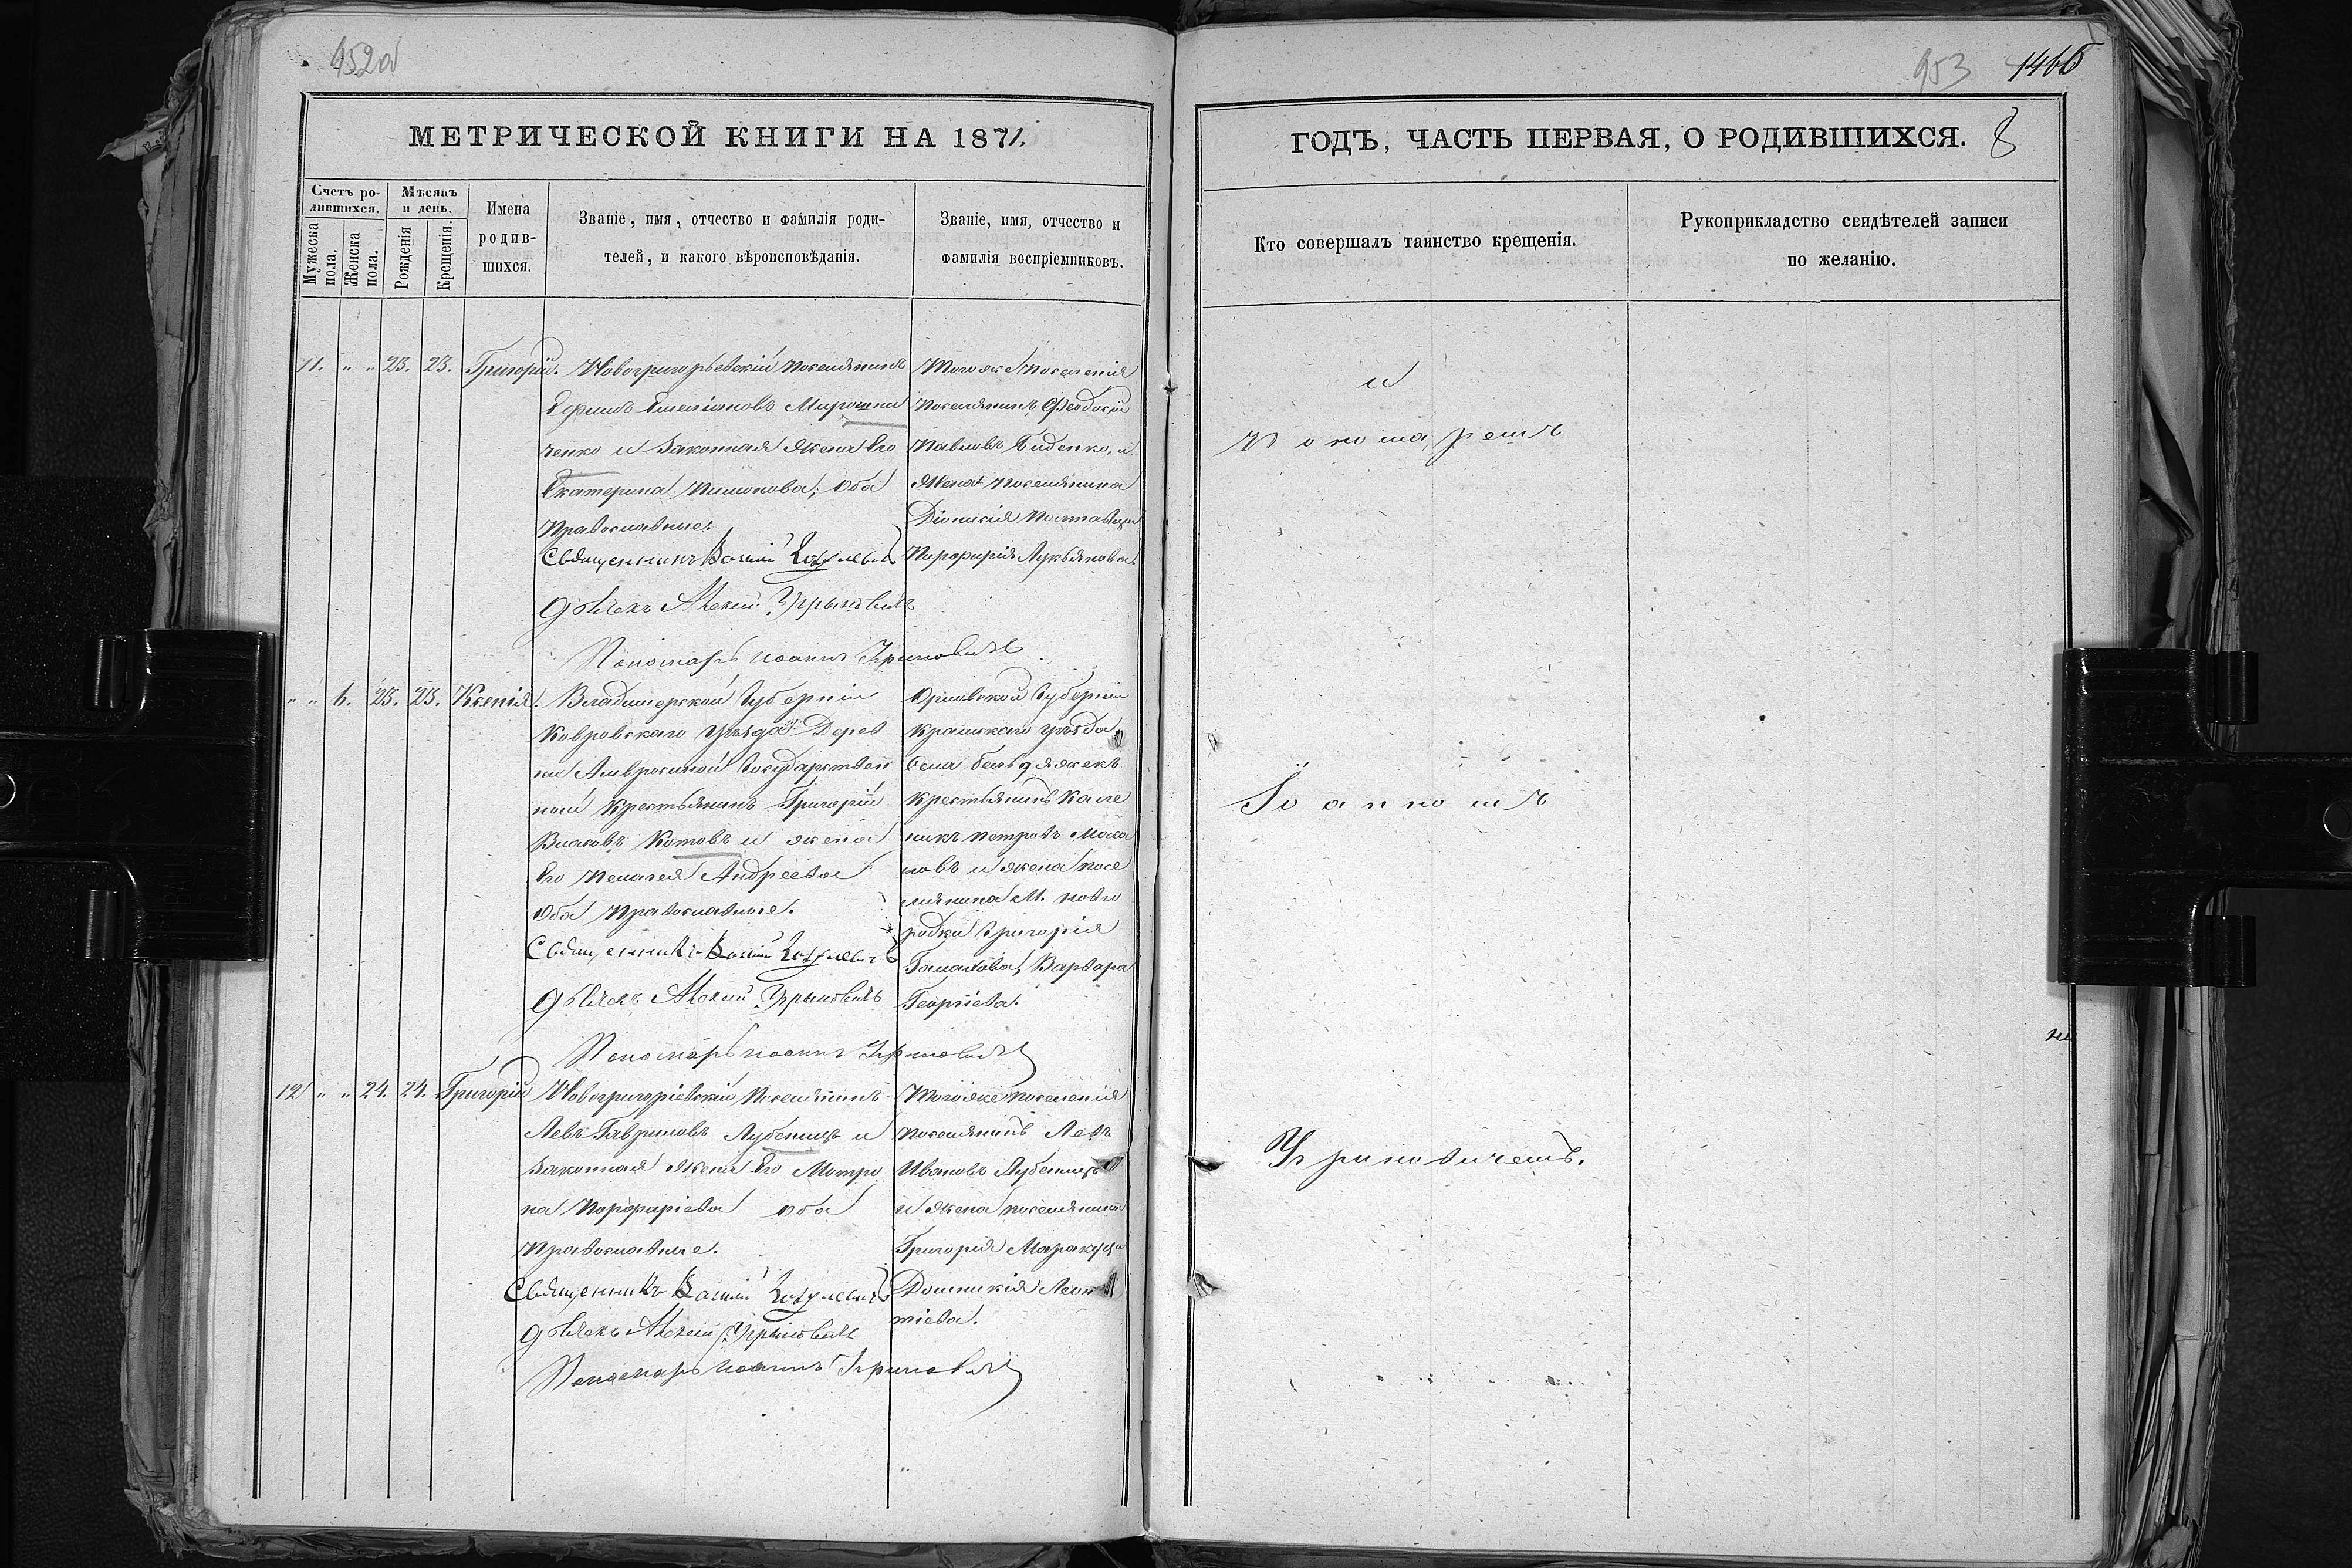 952а
МЕТРИЧЕСКОЙ КНИГИ НА 1871.
Счетъ ро-
дившихся.
Мѣсяцъ
и день.
Мужеска
пола.
Женска
пола.
Рожденія
Крещенія.
Имена
родив-
шихся.
Званіе, имя, отчество и фамилія роди-
телей, и какого вѣроисповѣданія.
Званіе, имя, отчество и
фамилія воспріемниковъ.
11. " " 23. 23. Григорій.
Новогригорьевскій поселянинъ
Ефимъ Емеліановъ Мирошни
ченко и законная жена его
Екатерина Пимонова, оба
православные.
Священникъ Василій
Дьячекъ Алексій
Пономарь Иоаннъ
Тогоже поселенія
поселянинъ Феодосій
Павловъ Биденко, и
жена поселянина
Діонисія Полтавца
Порфирія Лукьянова.
" " 6. 23. 23. Ксенія.
Владимерской губерніи
Ковровскаго уѣзда Дерев
ни Амвросиной государствен
ной крестьянинъ Григорій
Власовъ Котовъ и жена
его Пелагея Андреева
оба православные.
Священникъ Василій
Дьячекъ Алексій
Пономарь Иоаннъ
Орловской губерніи
уѣзда
Села
крестьянинъ Кале
никъ Петровъ Мака
ровъ и жена посе
лянина М. Новго
родки Григорія
Варвара
Георгіева.
12 " " 24. 24. Григорій
Новогригоріевскій поселянинъ
Левъ Гавриловъ Лубенецъ и
законная жена его Матро
на Порфиріева оба
православные.
Священникъ Василій
Дьячекъ Алексій
Пономарь Иоаннъ
Тогоже поселенія
поселянинъ Левъ
Ивановъ Лубенецъ
и жена поселянина
Григорія Маракуца
Домникія Леон
тіева.
953 1466
ГОДЪ, ЧАСТЬ ПЕРВАЯ, О РОДИВШИХСЯ. 8
Кто совершалъ таинство крещенія.
Рукоприкладство свидѣтелей записи
по желанію.
и
пономаремъ
Іоанномъ
Угриновичемъ.